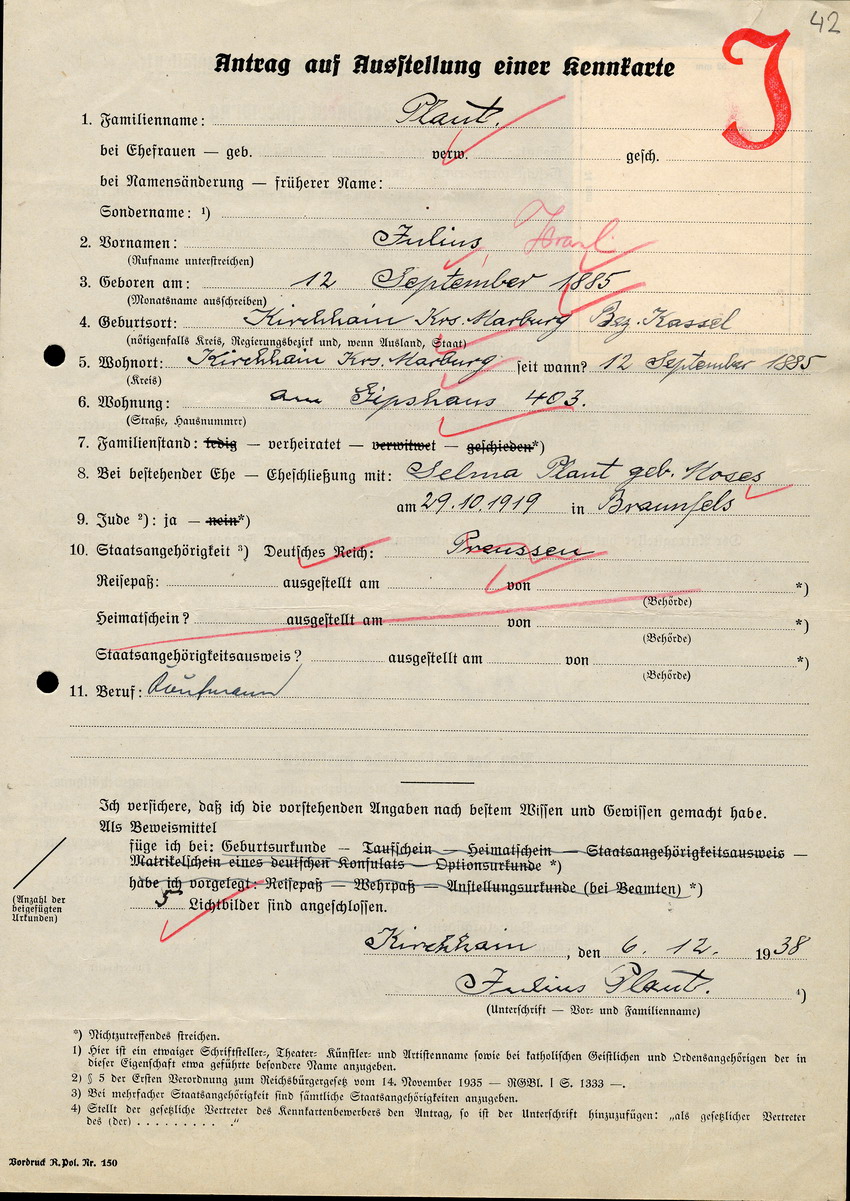 42
J
Antrag auf Ausstellung einer Kennkarte
1. Familienname: Plaut.
bei Ehefrauen — geb. verw. gesch.
bei Namensänderung — früherer Name:
Sondername: ¹)
2. Vornamen: Julius, Israel
(Rufname unterstreichen)
3. Geboren am: 12 September 1885
(Monatsname ausschreiben)
4. Geburtsort: Kirchhain Krs. Marburg Bez. Kassel
(nötigenfalls Kreis, Regierungsbezirk und, wenn Ausland, Staat)
5. Wohnort: Kirchhain Krs. Marburg seit wann? 12 September 1885
(Kreis)
6. Wohnung: am Gipshaus 403.
(Straße, Hausnummer)
7. Familienstand: ledig — verheiratet — verwitwet — geschieden*)
8. Bei bestehender Ehe — Eheschließung mit: Selma Plaut geb. Moses
am 29.10.1919 in Braunfels
9. Jude ²): ja — nein*)
10. Staatsangehörigkeit ³) Deutsches Reich: Preussen
Reisepaß: ausgestellt am von *)
(Behörde)
Heimatschein? ausgestellt am von *)
(Behörde)
Staatsangehörigkeitsausweis? ausgestellt am von *)
(Behörde)
11. Beruf: Kaufmann
Ich versichere, daß ich die vorstehenden Angaben nach bestem Wissen und Gewissen gemacht habe.
Als Beweismittel
füge ich bei: Geburtsurkunde — Taufschein — Heimatschein — Staatsangehörigkeitsausweis —
Matrikelschein eines deutschen Konsulats — Optionsurkunde *)
habe ich vorgelegt: Reisepaß — Wehrpaß — Anstellungsurkunde (bei Beamten) *)
(Anzahl der
beigefügten
Urkunden)
5 Lichtbilder sind angeschlossen.
Kirchhain, den 6. 12. 1938
Julius Plaut. ⁴)
(Unterschrift — Vor- und Familienname)
*) Nichtzutreffendes streichen.
1) Hier ist ein etwaiger Schriftsteller-, Theater- Künstler- und Artistenname sowie bei katholischen Geistlichen und Ordensangehörigen der in
dieser Eigenschaft etwa geführte besondere Name anzugeben.
2) § 5 der Ersten Verordnung zum Reichsbürgergesetz vom 14. November 1935 — RGBl. I S. 1333 —.
3) Bei mehrfacher Staatsangehörigkeit sind sämtliche Staatsangehörigkeiten anzugeben.
4) Stellt der gesetzliche Vertreter des Kennkartenbewerbers den Antrag, so ist der Unterschrift hinzuzufügen: „als gesetzlicher Vertreter
des (der) . . . . . . . . . "
Vordruck R.Pol. Nr. 150